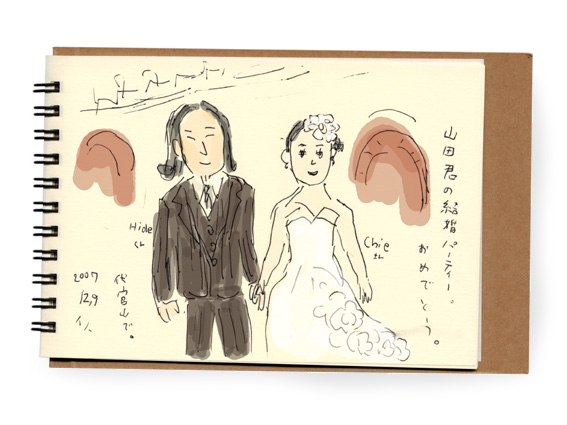 山田君の結婚パーティー。
おめでとう。
Chie
さん
Hide
くん
代官山で。
2007
12,9